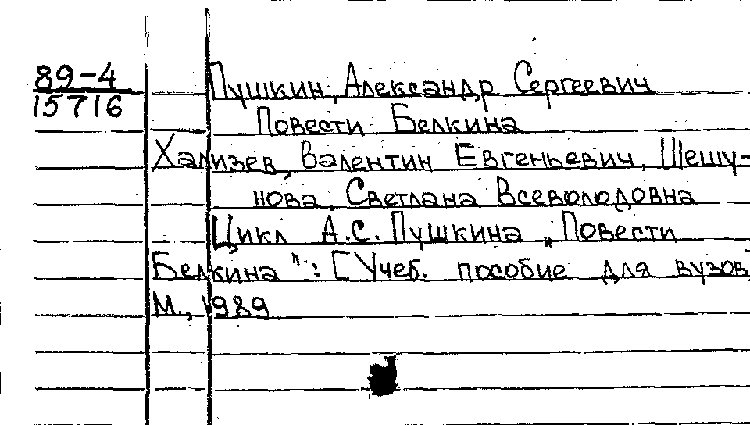 89-4
15716
Пушкин, Александр Сергеевич
Повести Белкина
Хализев, Валентин Евгеньевич, Шешу-
нова, Светлана Всеволодовна
Цикл А.С. Пушкина „Повести
Белкина": [Учеб. пособие для вузов
М., 1989